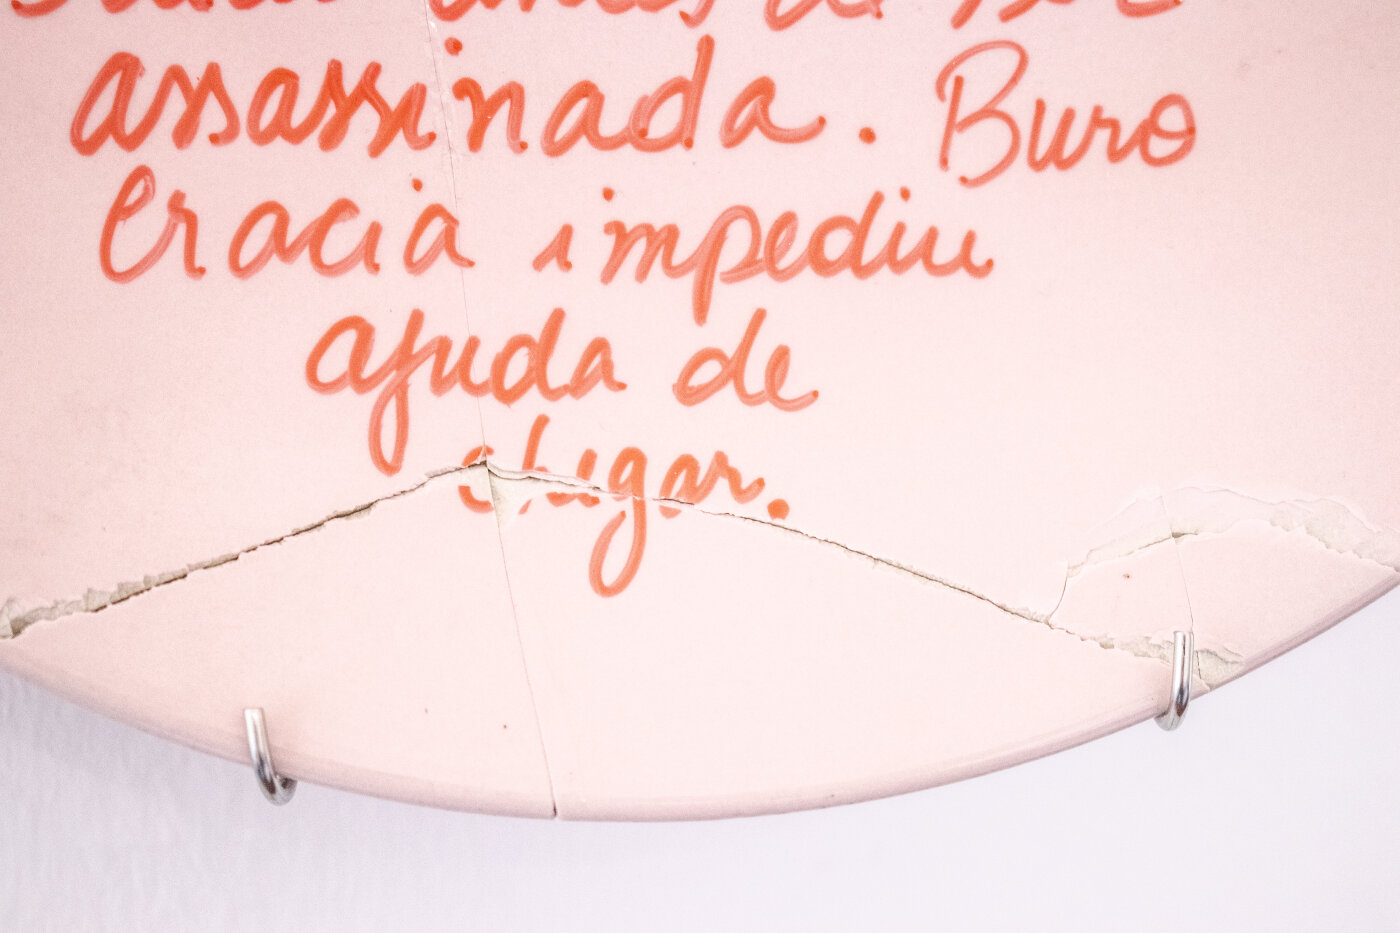 antes de ser
assassinada. Buro
cracia impediu
ajuda de
chegar.